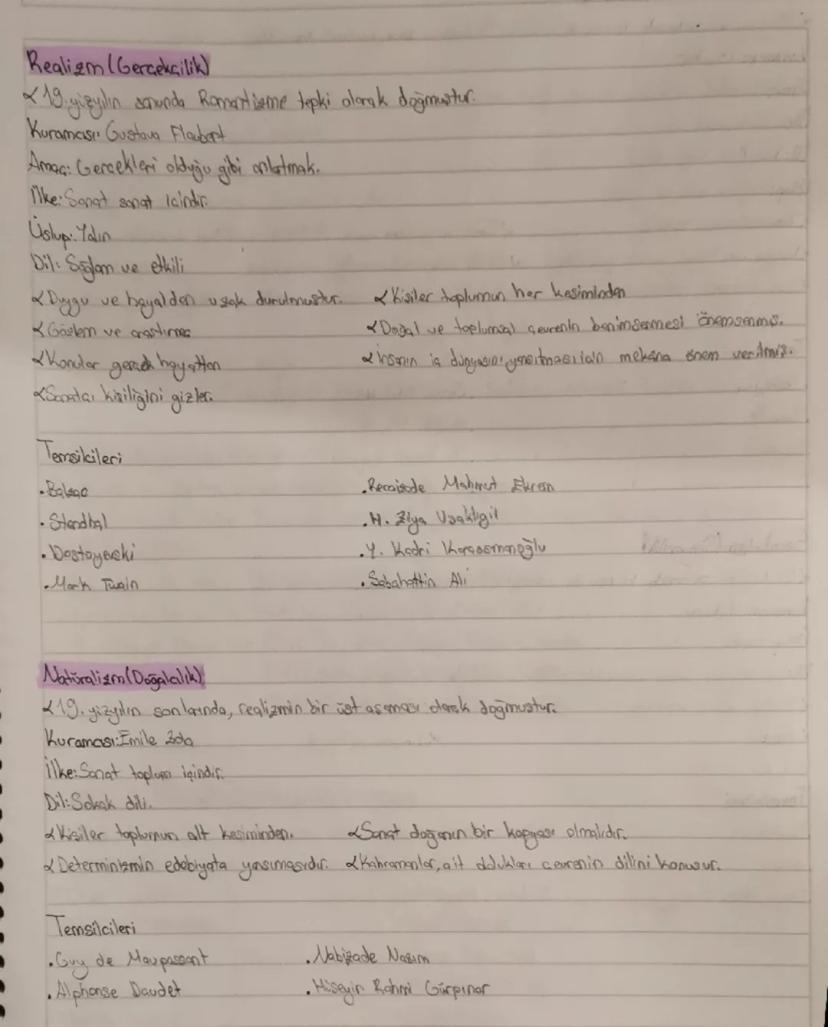 Realizm (Gerçekçilik)
19. yizyılın sonunda Romantizme tepki olarak doğmuştur.
Kuramcısı: Gustava Flaubert
Amaç: Gerçekleri olduğu gibi anlatmak.
İlke: Sanat sanat içindir.
Üslup: Yalın
Dil: Sağlam ve etkili
Duygu ve hayalden uzak durulmuştur. Kişiler toplumun her kesiminden
Gözlem ve araştırma Doğal ve toplumsal çevrenin benimsenmesi önemsenmiş.
Konular gerçek hayattan İnsanın iç dünyasını yansıtması için mekana önem verilmiş.
Sanatçı kişiliğini gizler.
Temsilcileri
• Balzac • Recaizade Mahmut Ekrem
• Stendhal • H. Ziya Uşaklıgil
• Dostoyevski • Y. Kadri Karaosmanoğlu
• Mark Twain • Sabahattin Ali
Natüralizm (Doğalcılık)
19. yizyılın sonlarında, realizmin bir üst aşaması olarak doğmuştur.
Kuramcısı: Emile Zola
İlke: Sanat toplum içindir.
Dil: Sokak dili.
Kişiler toplumun alt kesiminden. Sanat doğanın bir kopyası olmalıdır.
Determinizmin edebiyata yansımasıdır. Kahramanlar, ait oldukları çevrenin dilini konuşur.
Temsilcileri
• Guy de Maupassant • Nabizade Nazım
• Alphonse Daudet • Hüseyin Rahmi Gürpınar